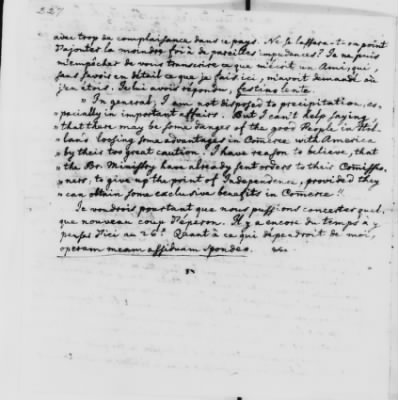 227
avec trop de complaisance dans ce pays. Ne se lassera-t-on point
d'ajouter la moindre foi à de pareilles impudences? Je ne puis
m'empêcher de vous transcrire ce que m'écrit un Ami, qui,
sans savoir en détail ce que je fais ici, m'avoit demandé où
j'en étois. Je lui avois répondu, festina lente.
" In general, I am not disposed to precipitation, es-
" pecially in important affairs. But I can't help saying,
" that there may be some danger of the good People in Hol-
" land loosing some advantages in Comerce with America
" by their too great caution. I have reason to believe, that
" the Br. Ministry have already sent orders to their Comissio-
" ners, to give up the point of Independence, provided they
" can obtain some exclusive benefits in Comerce".
Je voudrois pourtant que nous pussions concerter quel-
que nouveau coup d'éperon. Il y a encore du temps à y
penser d'ici au 26e. Quant à ce qui dépendroit de moi,
operam meam assiduam spondeo. &c.